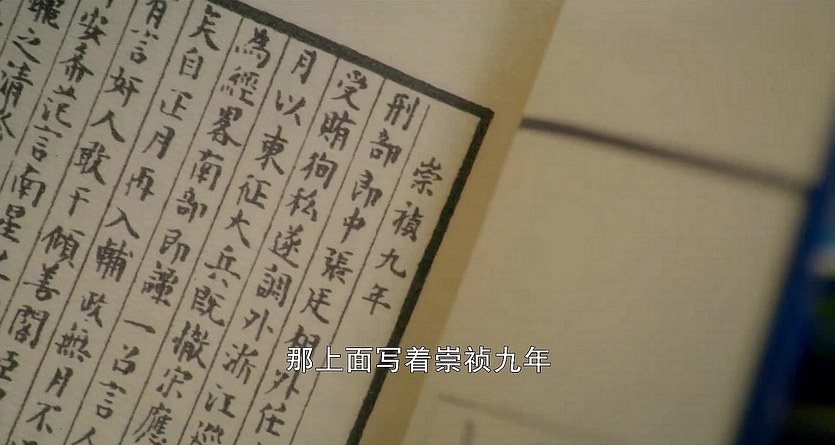 崇禎九年
刑部郎中張廷外任
受賄狥私遂調外浙江
月以東征大兵既撤宗應
為經畧南部即謹一言人
矣自正月再入輔政無月不
有言奸人敢于傾善閣
安希范言南星
之清
那上面写着崇祯九年